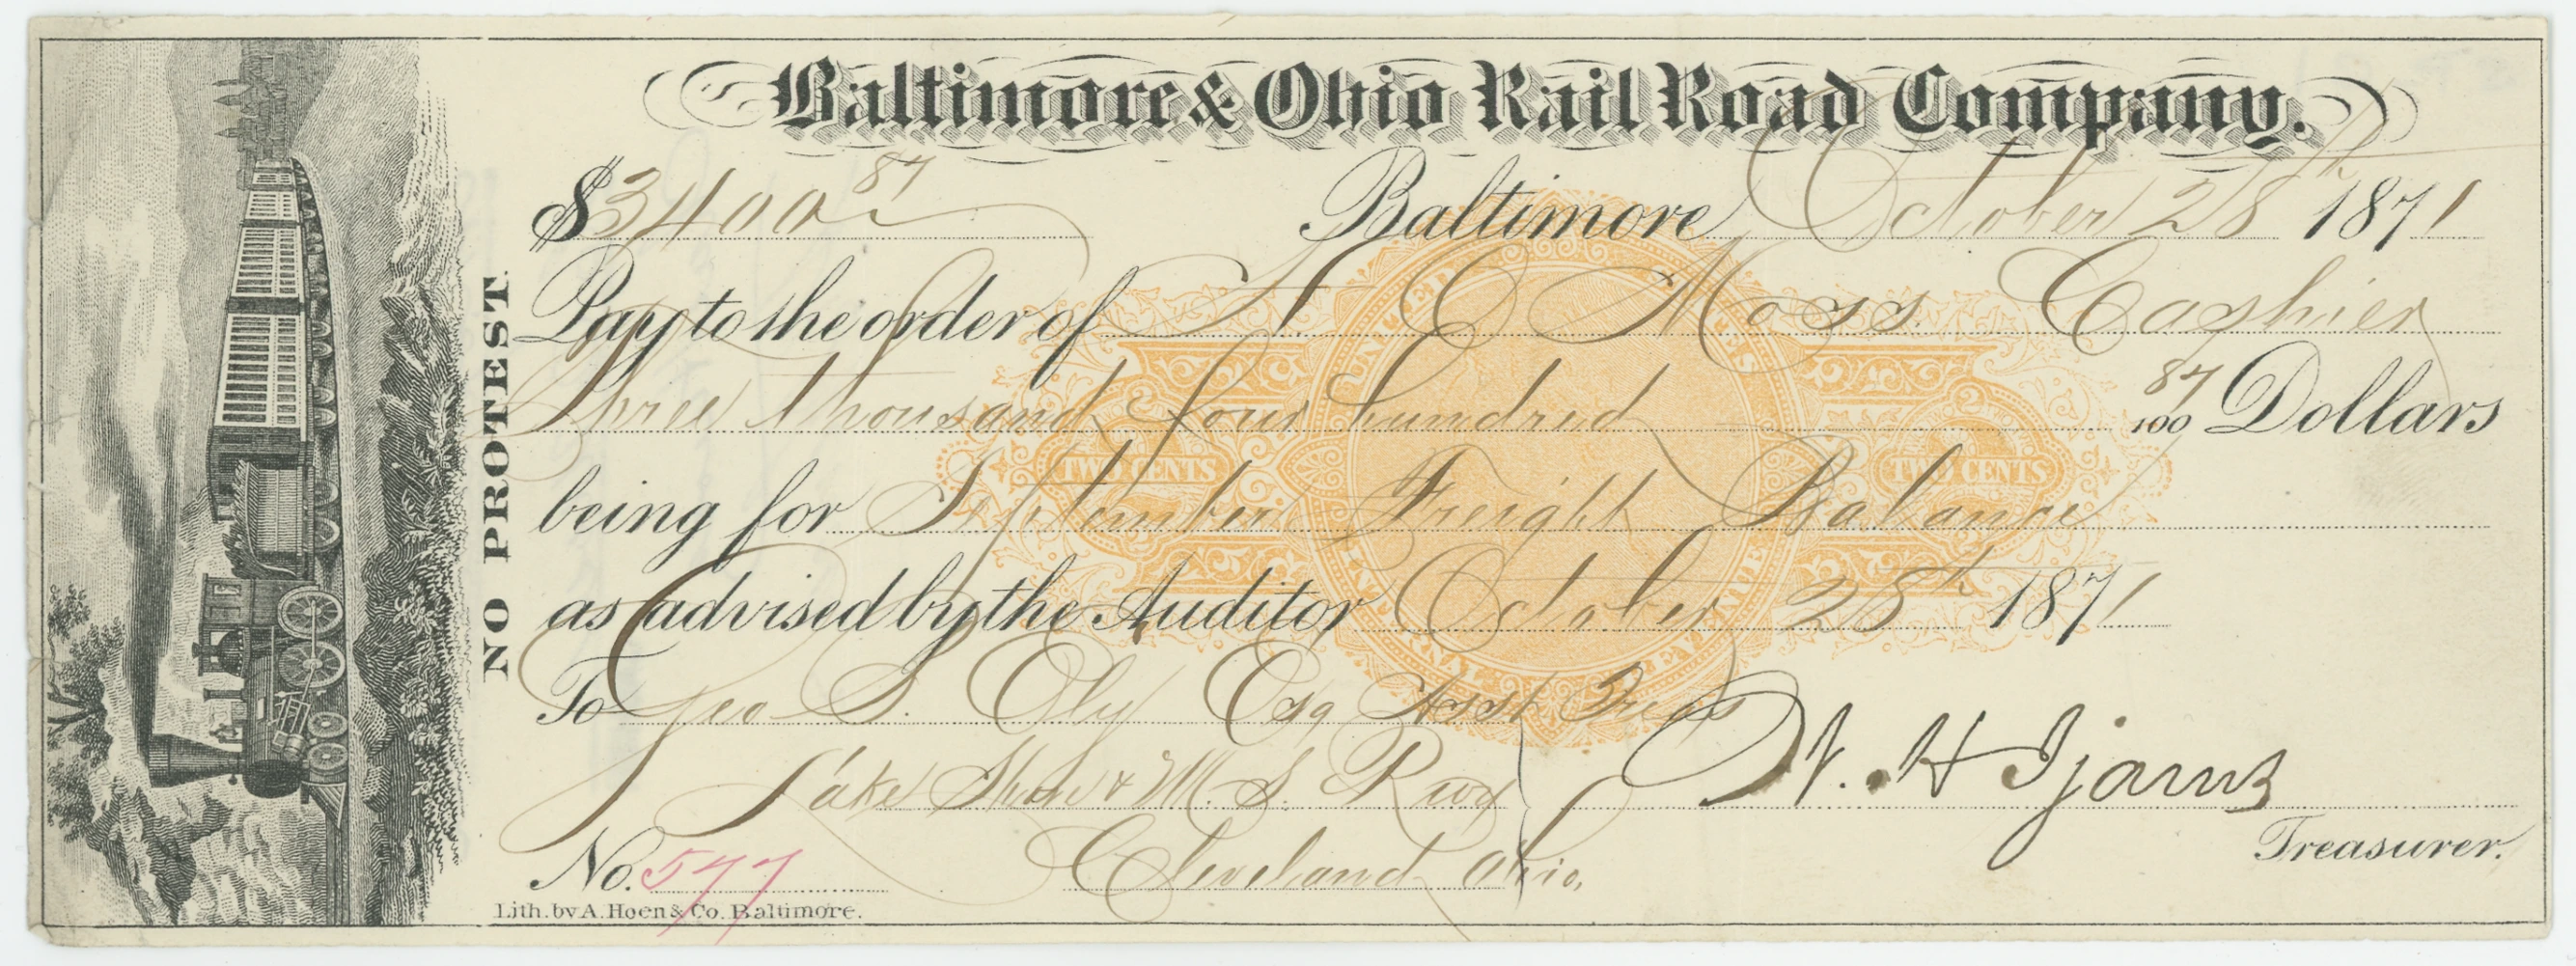 NO PROTEST
Baltimore & Ohio Rail Road Company.
$3400 87 Baltimore October 28th 1871
Pay to the order of C Moss Cashier
Three thousand four hundred 87/100 Dollars
being for September Freight Balance
as advised by the Auditor October 28th 1871
To Geo S. Ely Esq Asst Treas
Lake Shore & M. S. Rwy
W. H Ijams
Treasurer.
No. 577 Cleveland Ohio.
Lith. by A. Hoen & Co. Baltimore.
UNITED STATES
TWO CENTS TWO CENTS
INTERNAL REVENUE